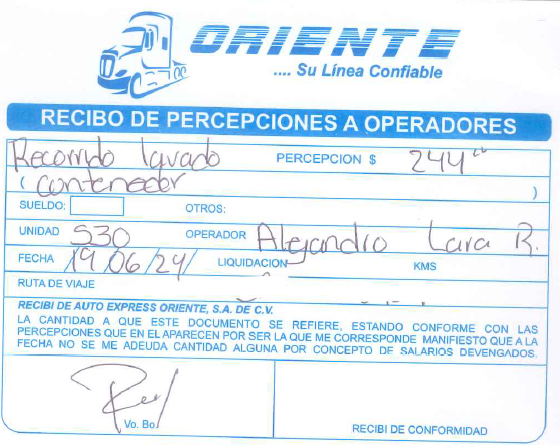 ORIENTE
.... Su Línea Confiable
RECIBO DE PERCEPCIONES A OPERADORES
Recorrido lavado PERCEPCION $ 244
( contenedor )
SUELDO: OTROS:
UNIDAD 530 OPERADOR Alejandro Lara R.
FECHA 19/06/24 LIQUIDACION KMS
RUTA DE VIAJE
RECIBI DE AUTO EXPRESS ORIENTE, S.A. DE C.V.
LA CANTIDAD A QUE ESTE DOCUMENTO SE REFIERE, ESTANDO CONFORME CON LAS
PERCEPCIONES QUE EN EL APARECEN POR SER LA QUE ME CORRESPONDE MANIFIESTO QUE A LA
FECHA NO SE ME ADEUDA CANTIDAD ALGUNA POR CONCEPTO DE SALARIOS DEVENGADOS.
Vo. Bo. RECIBI DE CONFORMIDAD